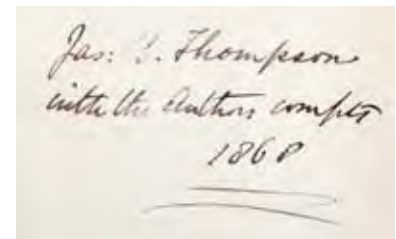 Jas: S. Thompson
with the Authors compts
1868